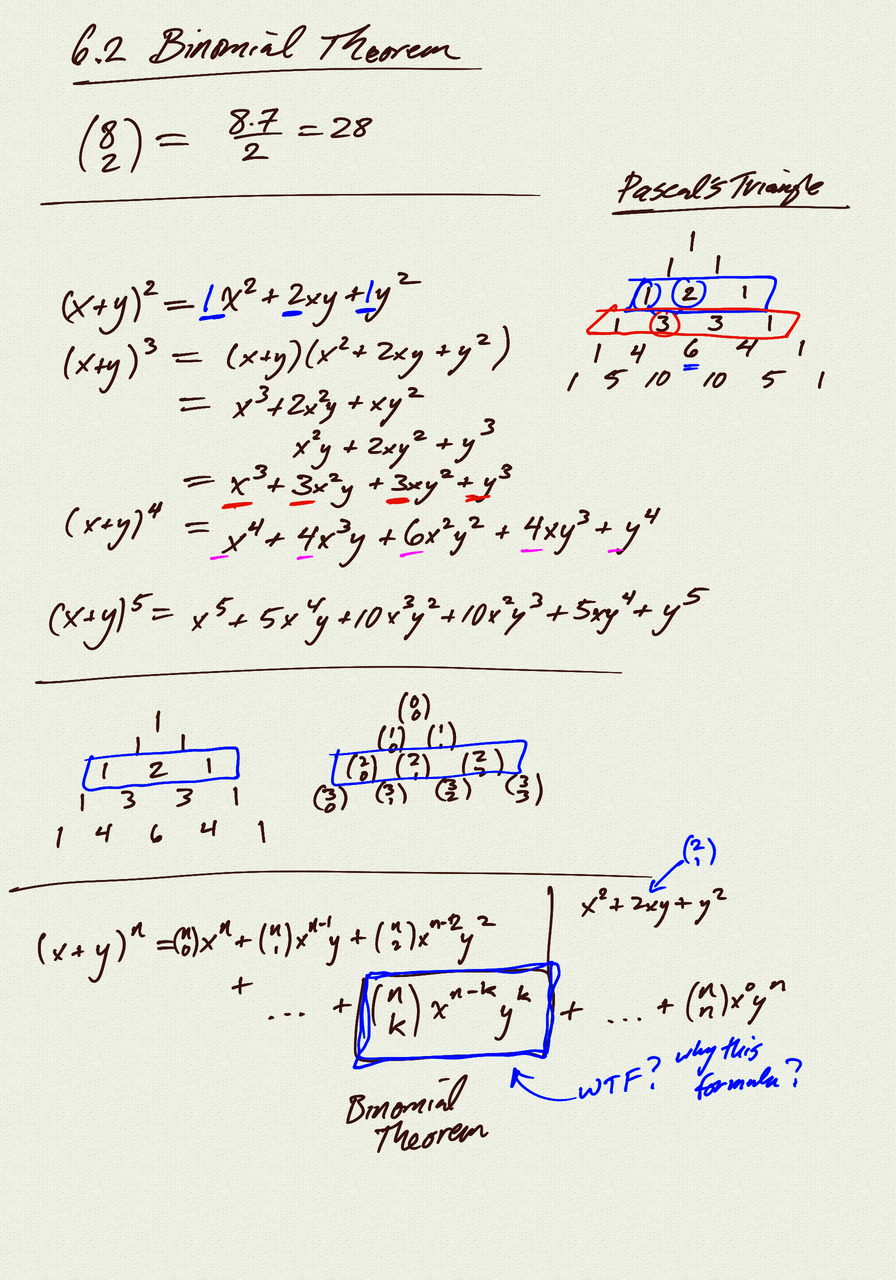 6.2 Binomial Theorem
(8 2) = 8·7/2 = 28
Pascal's Triangle
1
1 1
1 2 1
1 3 3 1
1 4 6 4 1
1 5 10 10 5 1
(x+y)² = 1x² + 2xy + 1y²
(x+y)³ = (x+y)(x² + 2xy + y²)
= x³ + 2x²y + xy²
x²y + 2xy² + y³
= x³ + 3x²y + 3xy² + y³
(x+y)⁴ = x⁴ + 4x³y + 6x²y² + 4xy³ + y⁴
(x+y)⁵ = x⁵ + 5x⁴y + 10x³y² + 10x²y³ + 5xy⁴ + y⁵
1
1 1
1 2 1
1 3 3 1
1 4 6 4 1
(0 0)
(1 0) (1 1)
(2 0) (2 1) (2 2)
(3 0) (3 1) (3 2) (3 3)
(2 1)
x² + 2xy + y²
(x+y)ⁿ = (n 0)xⁿ + (n 1)xⁿ⁻¹y + (n 2)xⁿ⁻²y²
+
... + (n k) xⁿ⁻ᵏ yᵏ + ... + (n n)x⁰yⁿ
WTF? why this
formula?
Binomial
Theorem